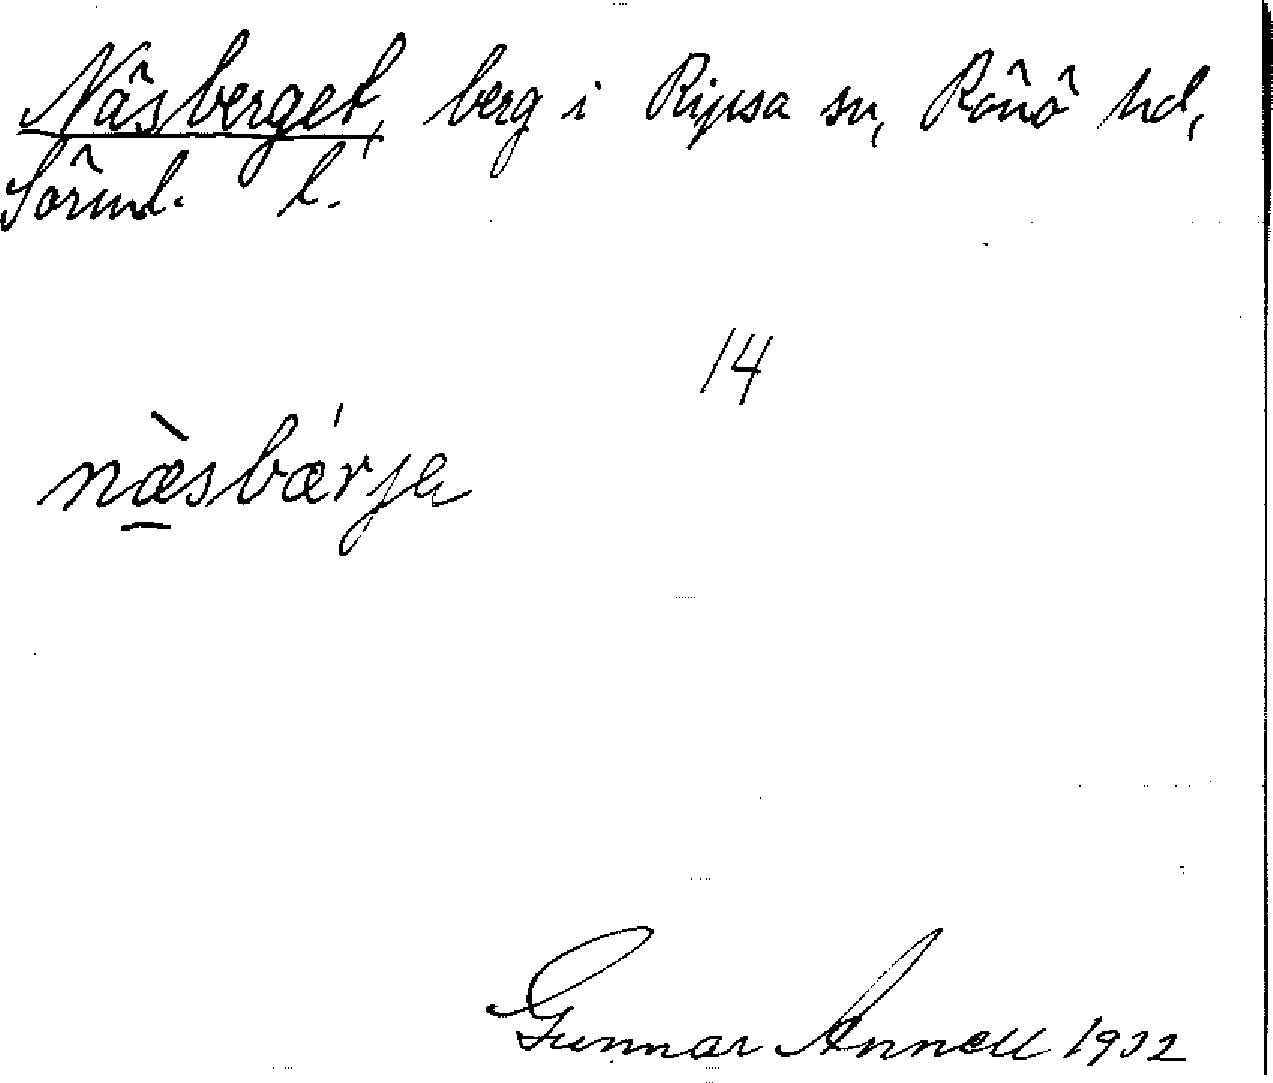 Näsberget, berg i Ripsa sn, Rönö hd,
Sörml. l.
14
næ̀sbær'ja
Gunnar Annell 1932